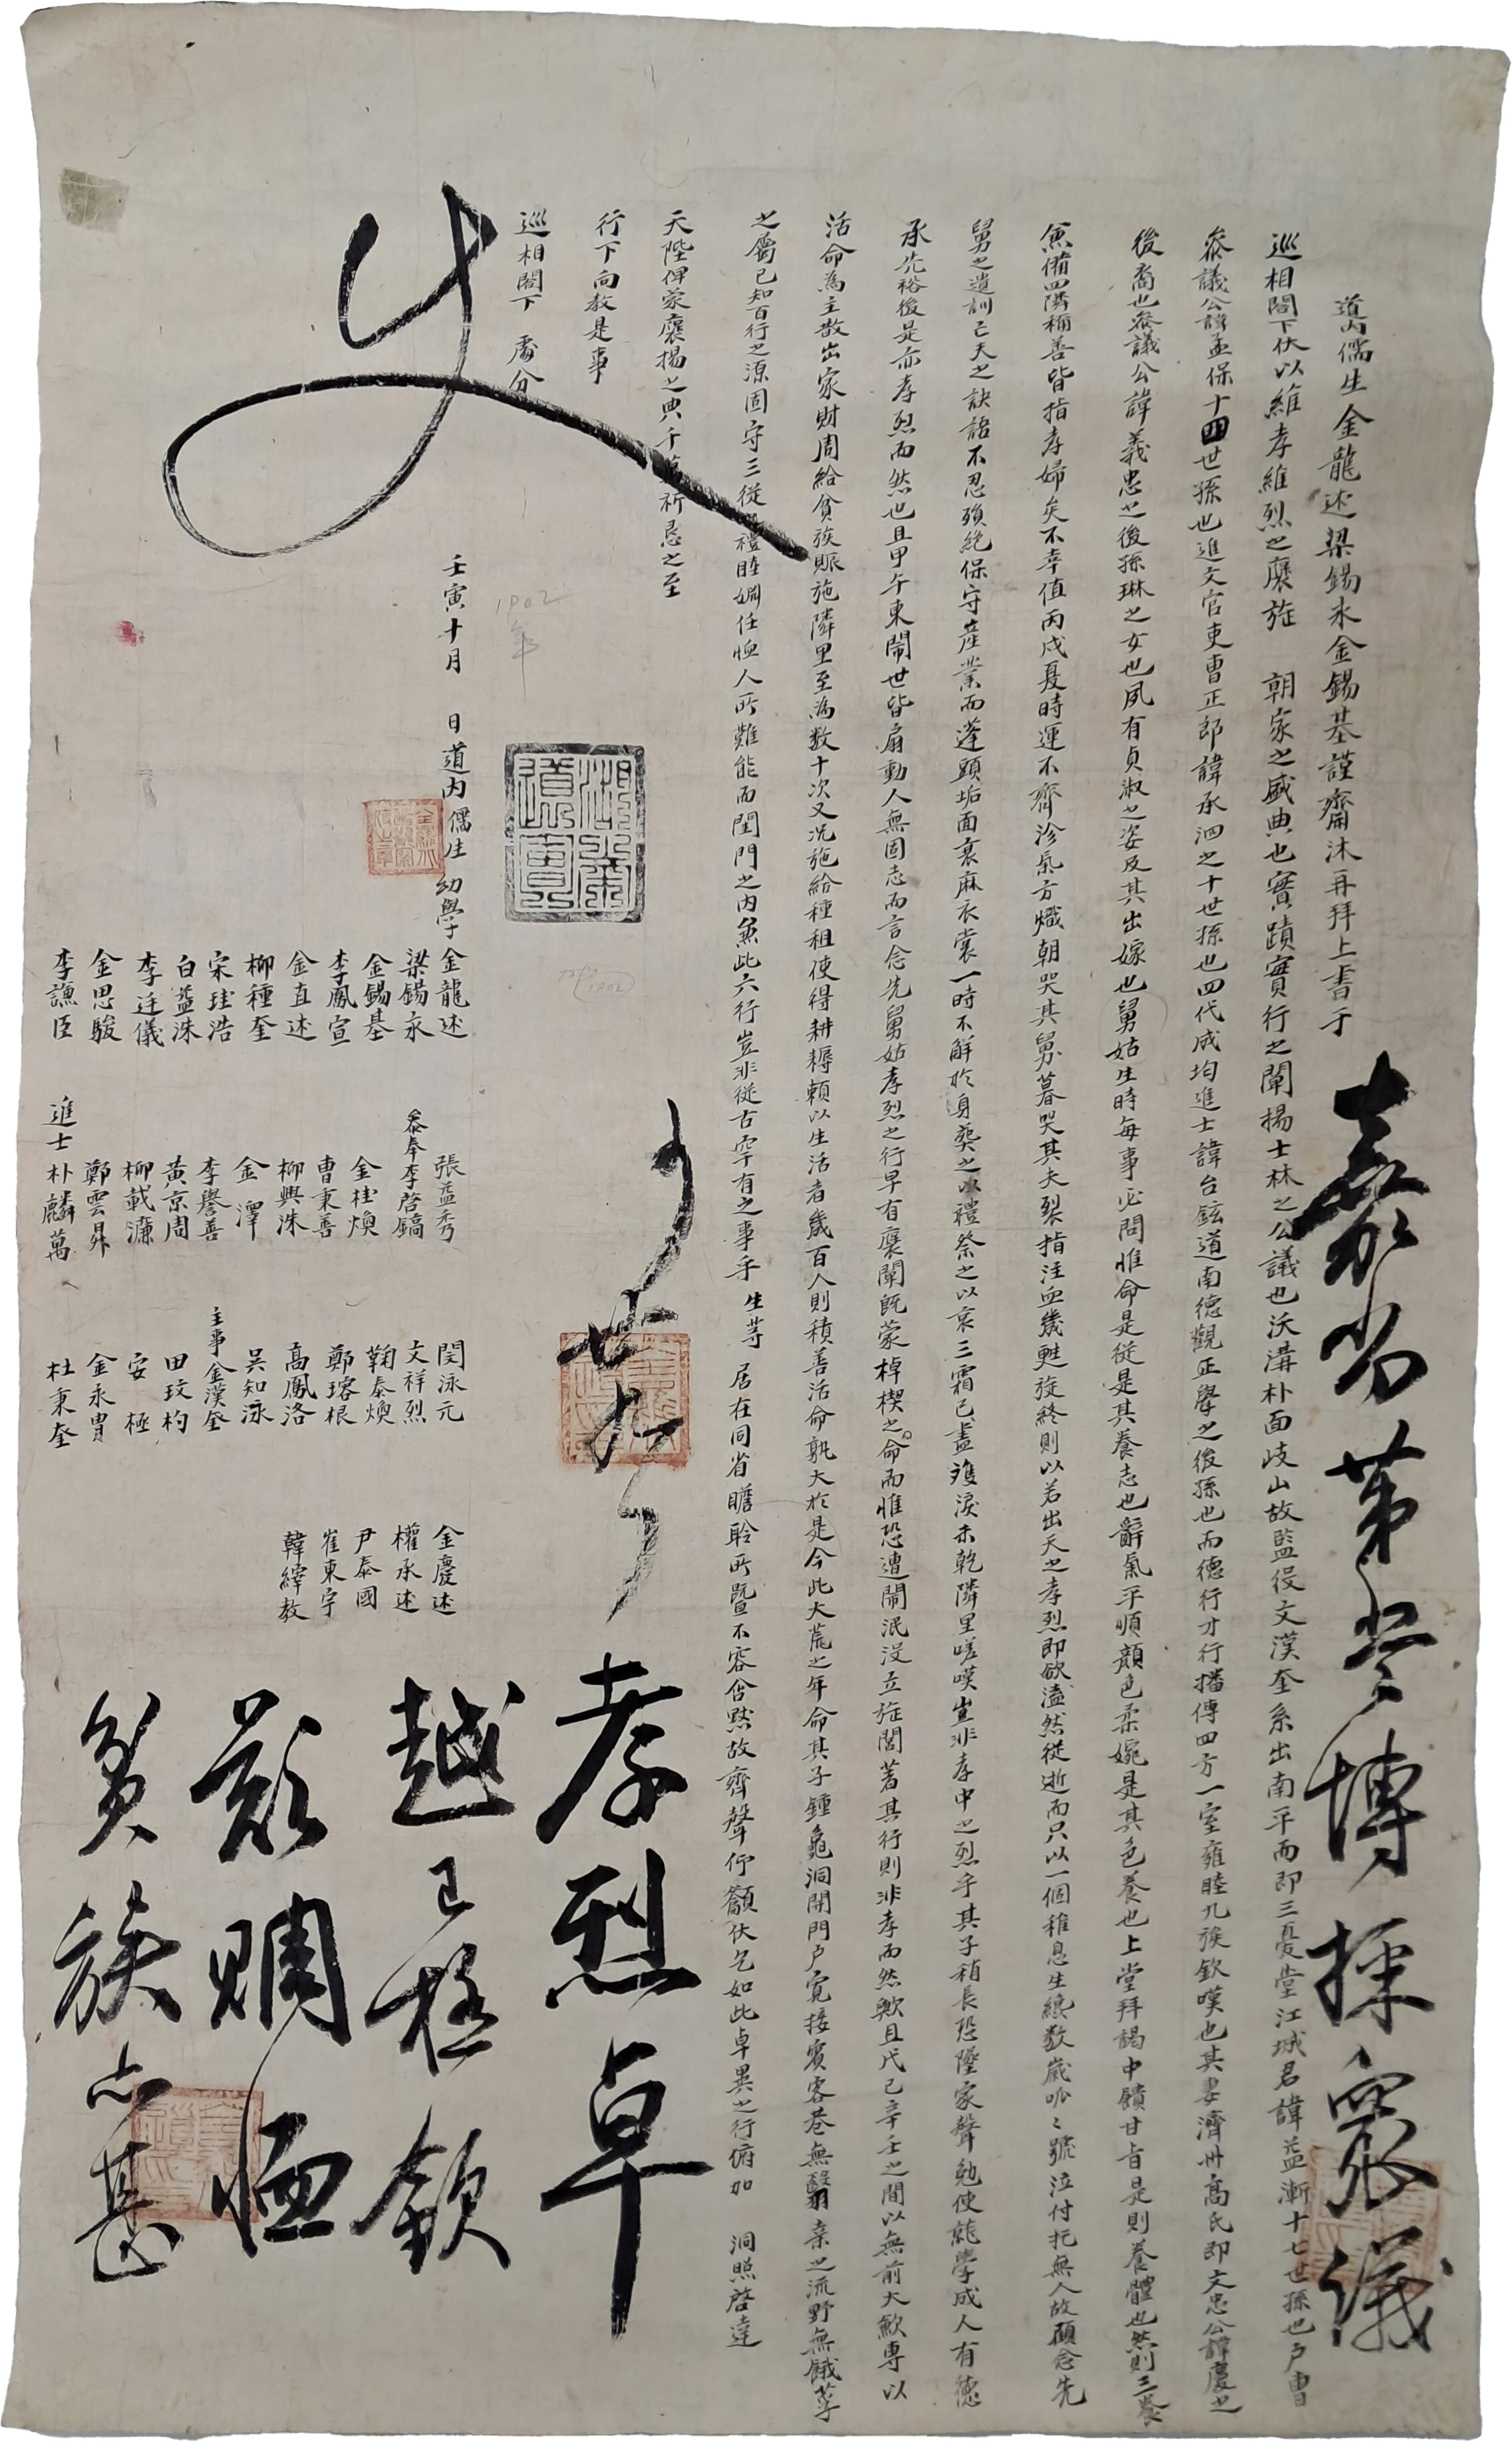 道內儒生金龍述梁錫永金錫基謹齋沐再拜上書于
巡相閤下伏以維孝維烈之襃旌 朝家之盛典也實蹟實行之闡揚士林之公議也沃溝朴面歧山故監役文漢奎系出南平而即三憂堂江城君諱益漸十七世孫也戶曹
參議公諱孟保十四世孫也進文官吏曹正郎諱承泗之十世孫也四代成均進士諱台鉉道南德觀正擧之後孫也而德行才行播傳四方一室雍睦九族欽嘆也其妻濟州高氏即文忠公諱慶之
後裔也參議公諱義忠之後孫琳之女也夙有貞淑之姿及其出嫁也舅姑生時每事必問惟命是從是其養志也辭氣平順顔色柔婉是其色養也上堂拜謁中饋甘旨是則養體也然則三養
兼備四隣稱善皆指孝婦矣不幸値丙戌夏時運不齊沴氣方熾朝哭其舅暮哭其夫裂指注血幾甦旋終則以若出天之孝烈即欲溘然從逝而只以一個稚息生纔數歲呱〻號泣付托無人故顧念先
舅之遺訓亡夫之訣語不忍殞絶保守産業而蓬頭垢面衰麻衣裳一時不解於身葬之以禮祭之以哀三霜已盡雙淚未乾隣里嗟嘆豈非孝中之烈乎其子稍長恐墜家聲勉使就學成人有德
承先裕後是亦孝烈而然也且甲午東鬧世皆扇動人無固志而言念先舅姑孝烈之行早有襃闡旣蒙棹楔之命而惟恐遭鬧泯沒立旌閭著其行則非孝而然歟且戊己辛壬之間以無前大歉專以
活命爲主散出家財周給貧族賑施隣里至爲數十次又況施給種租使得耕耨賴以生活者幾百人則積善活命孰大於是今此大荒之年命其子鍾龜洞開門戶寬接賓客巷無翳桑之流野無餓莩
之屬已知百行之源固守三從之禮睦婣任恤人所難能而閨門之內兼此六行豈非從古罕有之事乎 生等 居在同省瞻聆所曁不容含默故齊聲仰籲伏乞如此卓異之行俯加 洞照啓達
天陛俾蒙襃揚之典千萬祈恳之至
行下向敎是事
巡相閤下 處分
壬寅十月 日道內儒生 幼學 金龍述 張益秀 閔泳元 金慶述
梁錫永 參奉李啓鎬 文祥烈 權承述
金錫基 金桂煥 鞠泰煥 尹泰國
李鳳宣 曹秉善 鄭瑢根 崔東宇
金直述 柳興洙 高鳳洛 韓繹敎
柳種奎 金澤 吳知泳
宋珪浩 李譽善 主事金漢奎
白益洙 黃京周 田玟杓
李廷儀 柳載濂 安極
金思駿 鄭雲昇 金永胄
李謙臣 進士朴麟萬 杜秉奎
1902
年
1902
嘉尙第當博採衆議
孝烈卓
越已極欽
歎賙恤
貧族亦甚